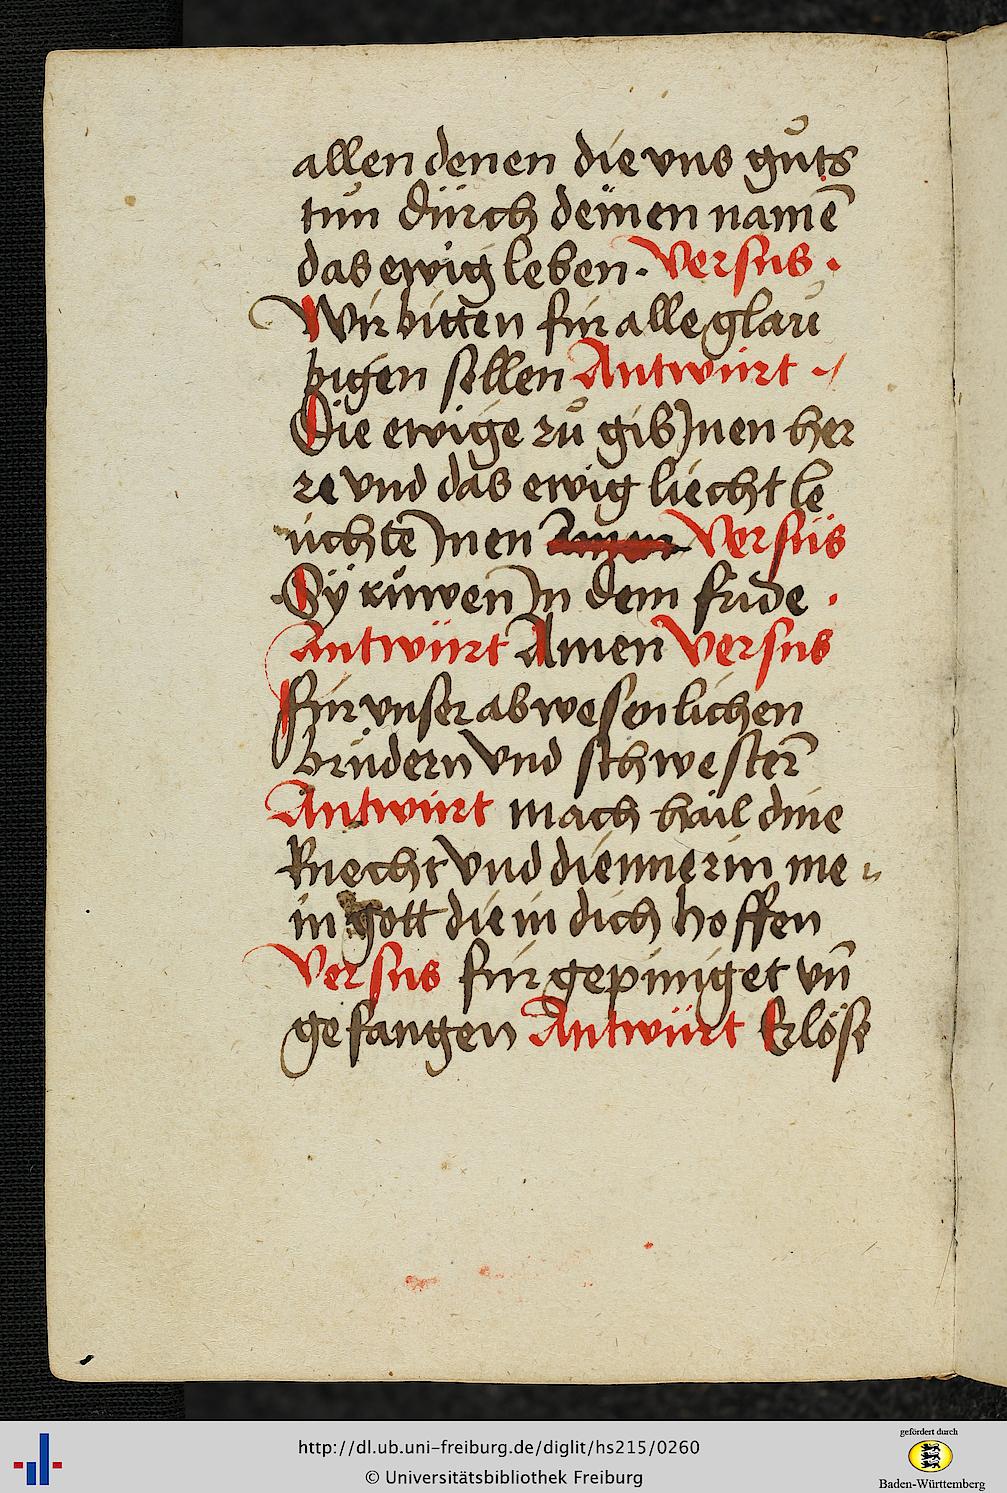 allen denen die vns gůts
tůn dürch deinen namē
das ewig leben · Versus ·
Wir bitten für alle glaů
bigen sellen Antwürt ·
Die ewige rů gib Jnen her
re vnd das ewig liecht le
üchtē Jnen Amen Versüs
Sÿ rüwen Jn dem fride ·
Antwürt Amen Versus
für vnser abwesenlichen
brüdern vnd schwesterē
Antwürt mach hail dine
knecht vnd diennerin me
in gott die in dich hoffen
Versus für gepiniget vn̄
gefangen Antwürt Erlöse
http://dl.ub.uni-freiburg.de/diglit/hs215/0260
© Universitätsbibliothek Freiburg
gefördert durch
Baden-Württemberg